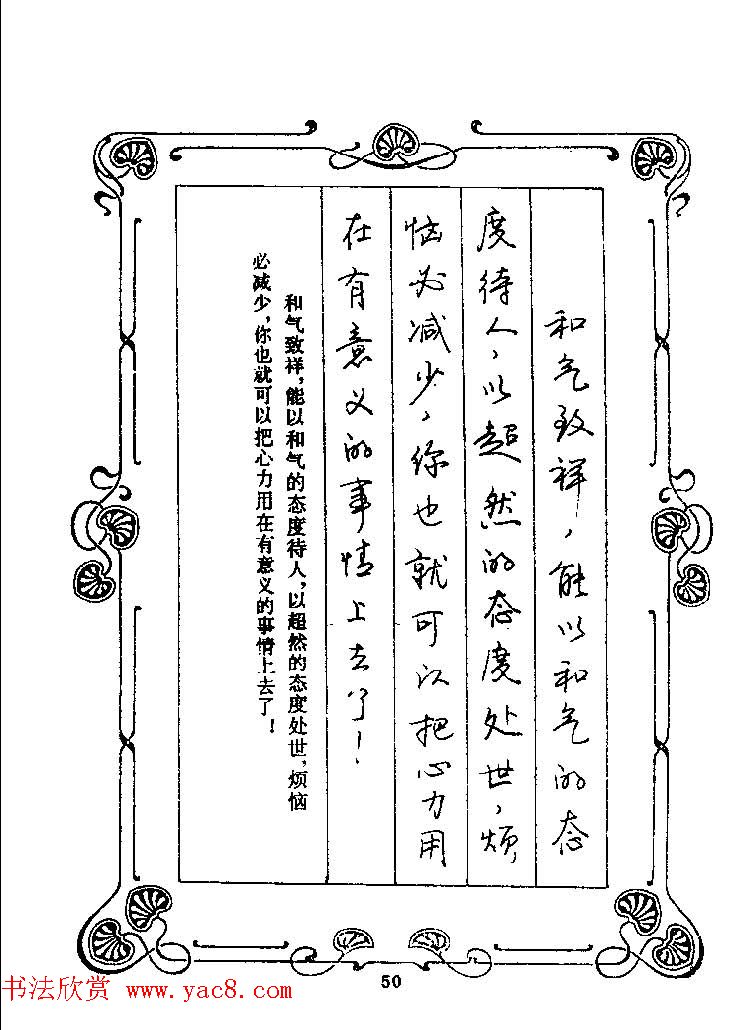 和气致祥，能以和气的态
度待人，以超然的态度处世，烦
恼必减少，你也就可以把心力用
在有意义的事情上去了！
和气致祥，能以和气的态度待人，以超然的态度处世，烦恼
必减少，你也就可以把心力用在有意义的事情上去了！
50
书法欣赏 www.yac8.com